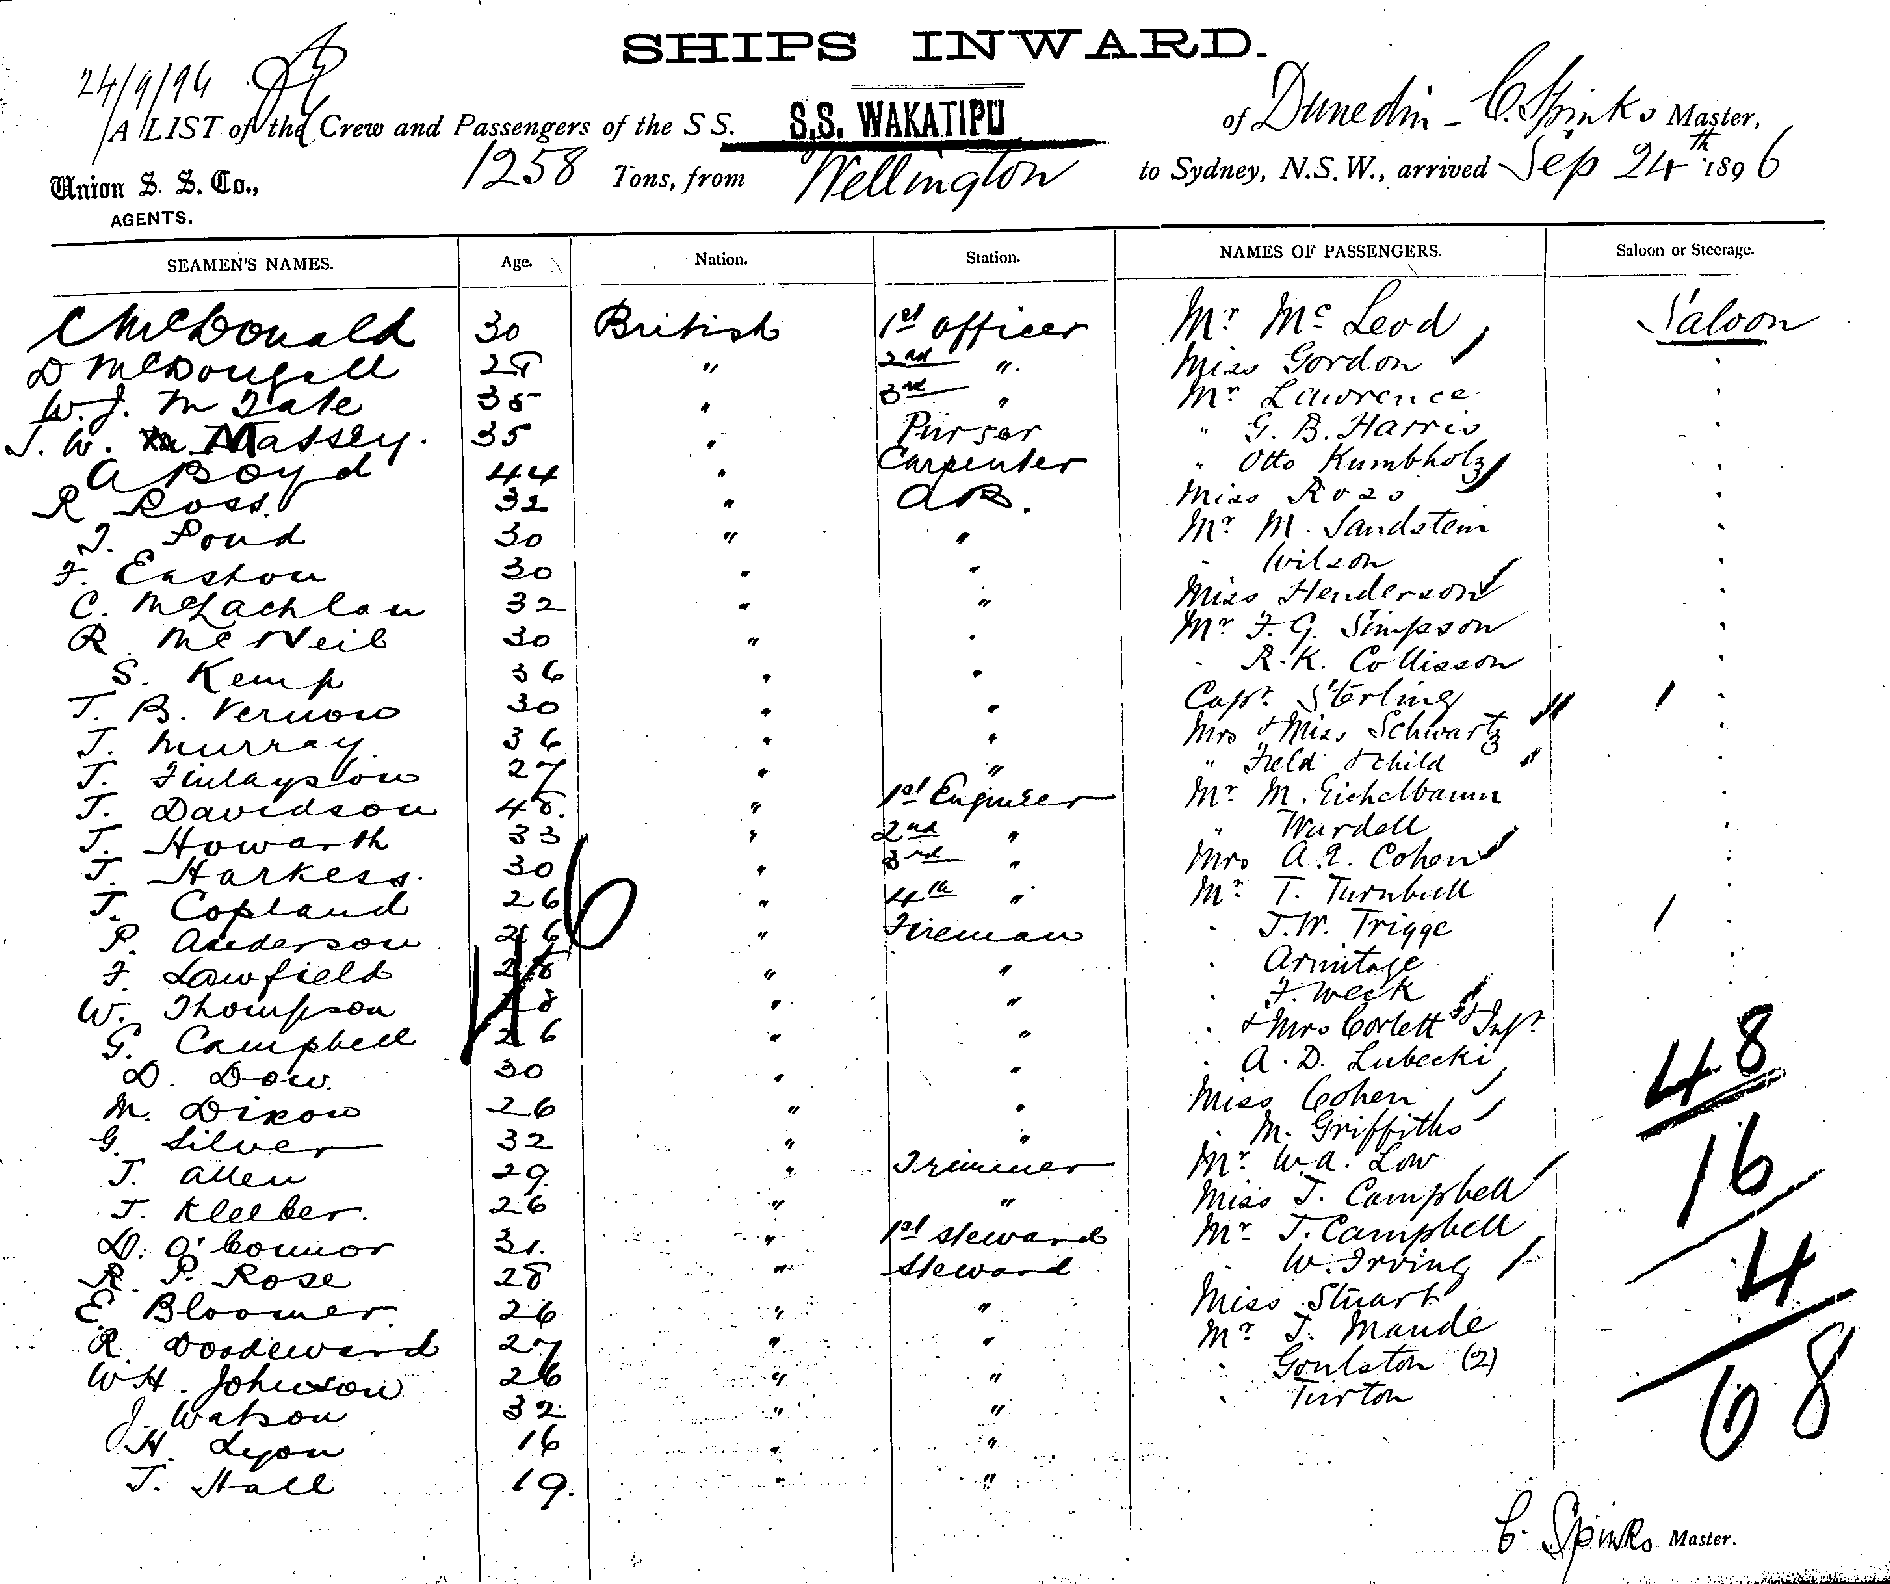 SHIPS INWARD.
24/9/96
A LIST of the Crew and Passengers of the S S. S.S. WAKATIPU of Dunedin - C. Spinks Master,
Union S. S. Co., 1258 Tons, from Wellington to Sydney, N.S.W., arrived Sep 24th 1896
AGENTS.
SEAMEN'S NAMES. Age. Nation. Station. NAMES OF PASSENGERS. Saloon or Steerage.
C McDonald 30 British 1st officer Mr Mc Leod Saloon
D McDougall 29 " 2nd " Miss Gordon
W. J. M Tate 35 " 3rd " Mr Lawrence
J. W. Massey. 35 " Purser " G. B. Harris
A Boyd 44 " Carpenter " Otto Kumbholz
R Ross. 32 " A B. Miss Ross
J. Pond 30 " " Mr M. Sandstein
F. Easton 30 " " " Wilson
C. McLachlan 32 " " Miss Henderson
R. McNeil 30 " " Mr F. G. Simpson
S. Kemp 36 " " " R. K. Collisson
T. B. Vernon 30 " " Capt. Sterling
J. Murray. 36 " " Mrs & Miss Schwartz
J. Finlayson 27 " " " Field & child
J. Davidson 48. " 1st Engineer Mr M. Eichelbaum
J. Howarth 33 " 2nd " " Wardell
J. Harkess. 30 " 3rd " Mrs Cohen
J. Copland 26 " 4th " Mr T. Turnbull
P. Anderson 26 " Fireman " J. W. Trigge
F. Lawfield 28 " " " Armitage
W. Thompson 28 " " " F. Weck
G. Campbell 26 " " " & Mrs Corlett & Inft
D. Dow. 30 " " " A. D. Lubecki
M. Dixon 26 " " Miss Cohen
G. Silver 32 " " " M. Griffiths
J. Allen 29. " Trimmer Mr W. A. Low
J. Kleeber. 26 " " Miss J. Campbell
D. O'Connor 31. " 1st Steward Mr J. Campbell
R. P. Rose 28 " Steward " W. Irving
E. Bloomer. 26 " " Miss Stuart
R. Doodeward 27 " " Mr J. Maude
W H. Johnson 26 " " " Goulston (2)
J. Watson 32 " " " Turton
H. Lyon 16 " "
J. Hall 19. " "
46
48
16
4
68
C. Spinks Master.